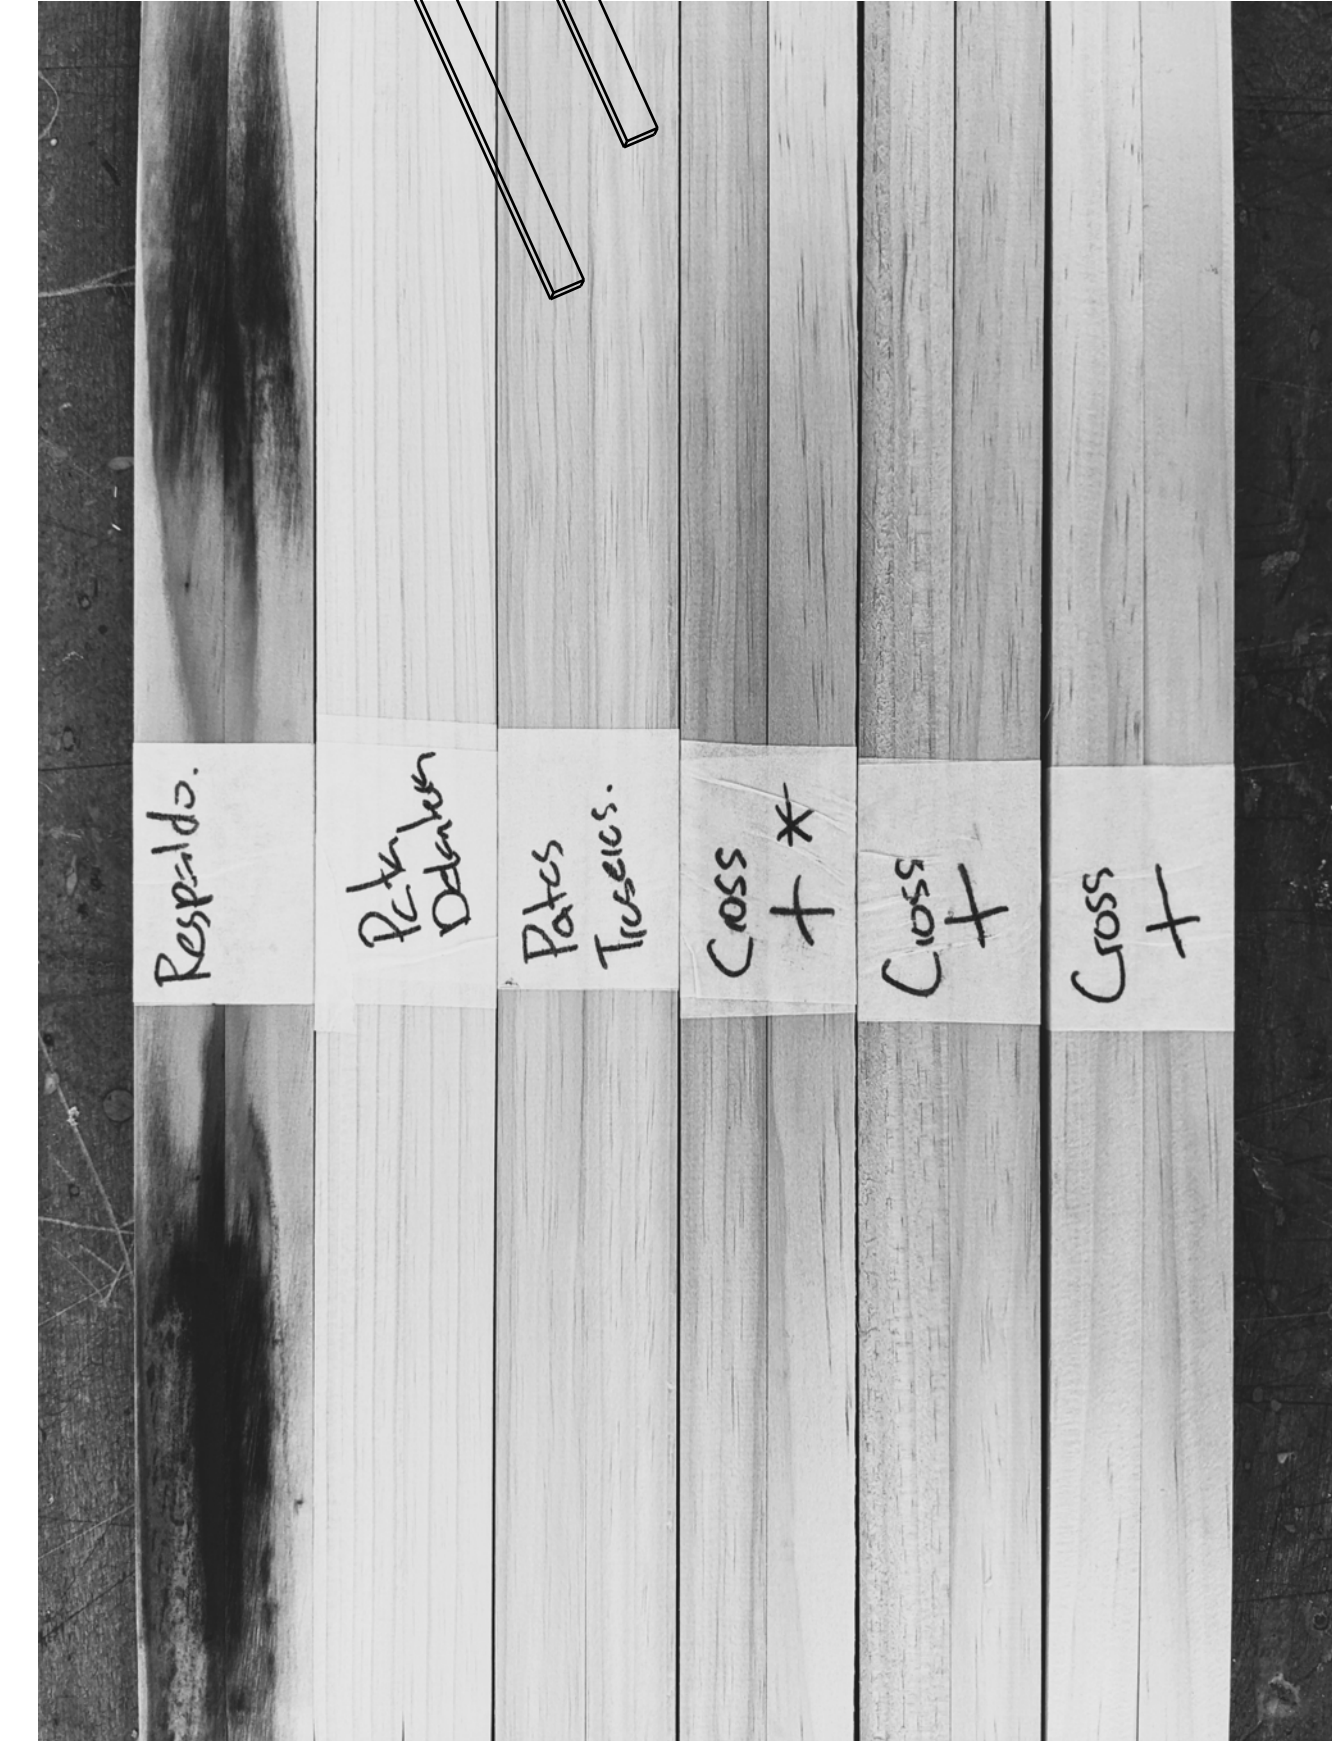 Respaldo.
Patas
Delanteras
Patas
Traseras.
Cross
+ *
Cross
+
Cross
+